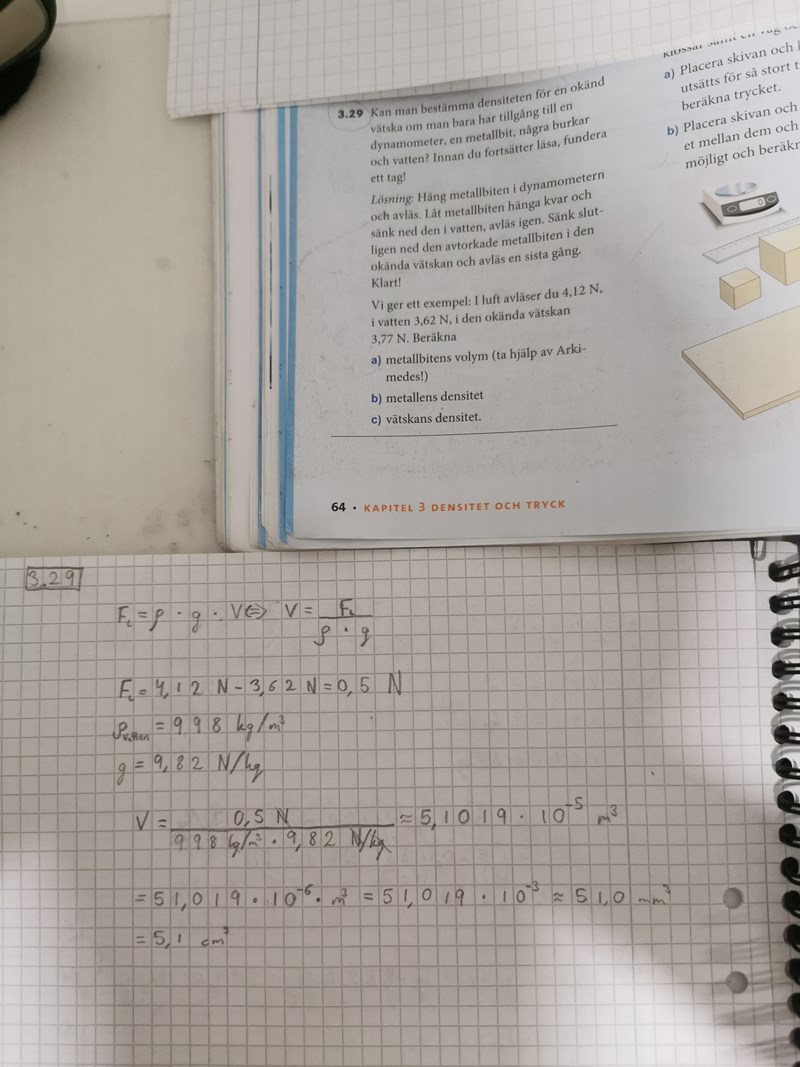 3.29 Kan man bestämma densiteten för en okänd
vätska om man bara har tillgång till en
dynamometer, en metallbit, några burkar
och vatten? Innan du fortsätter läsa, fundera
ett tag!
Lösning: Häng metallbiten i dynamometern
och avläs. Låt metallbiten hänga kvar och
sänk ned den i vatten, avläs igen. Sänk slut-
ligen ned den avtorkade metallbiten i den
okända vätskan och avläs en sista gång.
Klart!
Vi ger ett exempel: I luft avläser du 4,12 N,
i vatten 3,62 N, i den okända vätskan
3,77 N. Beräkna
a) metallbitens volym (ta hjälp av Arki-
medes!)
b) metallens densitet
c) vätskans densitet.
64 • KAPITEL 3 DENSITET OCH TRYCK
a) Placera skivan och
utsätts för så stort
beräkna trycket.
b) Placera skivan och
et mellan dem och
möjligt och
0
3.29
F_L = ρ · g · V ⇔ V = F_L / ρ · g
F_L = 4,12 N - 3,62 N = 0,5 N
ρ_vatten = 998 kg/m³
g = 9,82 N/kg
V = 0,5 N / 998 kg/m³ · 9,82 N/kg ≈ 5,1019 · 10⁻⁵ m³
= 51,019 · 10⁻⁶ · m³ = 51,019 · 10⁻³ ≈ 51,0 mm³
= 5,1 cm³